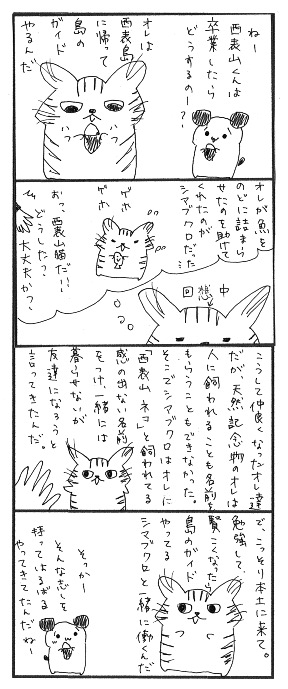 ねー
西表山くんは
卒業したら
どうするのー?
オレは
西表島
に帰って
島の
ガイド
やるんだ
オレが魚を
のどに詰まら
せたのを助けて
くれたのが
シマブクロだった…
ゲホ
ゲホ
おっ、
西表山猫だ!!
どうした?
大丈夫かっ?
回想中
こうして仲良くなったオレ達
だが、天然記念物のオレは
人に飼われることも名前を
もらうこともできなかった。
そこでシマブクロはオレに
「西表山ネコ」と飼われてる
感の出ない名前
をつけ、一緒には
暮らせないが
友達になろうと
言ってきたんだ。
で、こっそり本土に来て。
勉強して、
賢くなった
島のガイド
やってる
シマブクロと一緒に働くんだ
そっかー
そんな志を
持ってはるばる
やってきてたんだねー